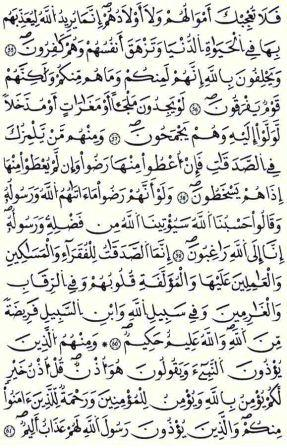 فَلَا تُعْجِبْكَ أَمْوَالُهُمْ وَلَا أَوْلَادُهُمْ إِنَّمَا يُرِيدُ اللَّهُ لِيُعَذِّبَهُم
بِهَا فِي الْحَيَاةِ الدُّنْيَا وَتَزْهَقَ أَنفُسُهُمْ وَهُمْ كَافِرُونَ ٥٥
وَيَحْلِفُونَ بِاللَّهِ إِنَّهُمْ لَمِنكُمْ وَمَا هُم مِّنكُمْ وَلَكِنَّهُمْ
قَوْمٌ يَفْرَقُونَ ٥٦ لَوْ يَجِدُونَ مَلْجَأً أَوْ مَغَارَاتٍ أَوْ مُدَّخَلًا
لَّوَلَّوْا إِلَيْهِ وَهُمْ يَجْمَحُونَ ٥٧ وَمِنْهُم مَّن يَلْمِزُكَ
فِي الصَّدَقَاتِ فَإِنْ أُعْطُوا مِنْهَا رَضُوا وَإِن لَّمْ يُعْطَوْا مِنْهَا
إِذَا هُمْ يَسْخَطُونَ ٥٨ وَلَوْ أَنَّهُمْ رَضُوا مَا ءَاتَاهُمُ اللَّهُ وَرَسُولُهُ
وَقَالُوا حَسْبُنَا اللَّهُ سَيُؤْتِينَا اللَّهُ مِن فَضْلِهِ وَرَسُولُهُ
إِنَّا إِلَى اللَّهِ رَاغِبُونَ ٥٩ إِنَّمَا الصَّدَقَاتُ لِلْفُقَرَاءِ وَالْمَسَاكِينِ
وَالْعَامِلِينَ عَلَيْهَا وَالْمُؤَلَّفَةِ قُلُوبُهُمْ وَفِي الرِّقَابِ
وَالْغَارِمِينَ وَفِي سَبِيلِ اللَّهِ وَابْنِ السَّبِيلِ فَرِيضَةً
مِّنَ اللَّهِ وَاللَّهُ عَلِيمٌ حَكِيمٌ ٦٠ وَمِنْهُمُ الَّذِينَ
يُؤْذُونَ النَّبِيءَ وَيَقُولُونَ هُوَ أُذْنٌ قُلْ أُذْنُ خَيْرٍ
لَّكُمْ يُؤْمِنُ بِاللَّهِ وَيُؤْمِنُ لِلْمُؤْمِنِينَ وَرَحْمَةٌ لِّلَّذِينَ ءَامَنُوا
مِنكُمْ وَالَّذِينَ يُؤْذُونَ رَسُولَ اللَّهِ لَهُمْ عَذَابٌ أَلِيمٌ ٦١